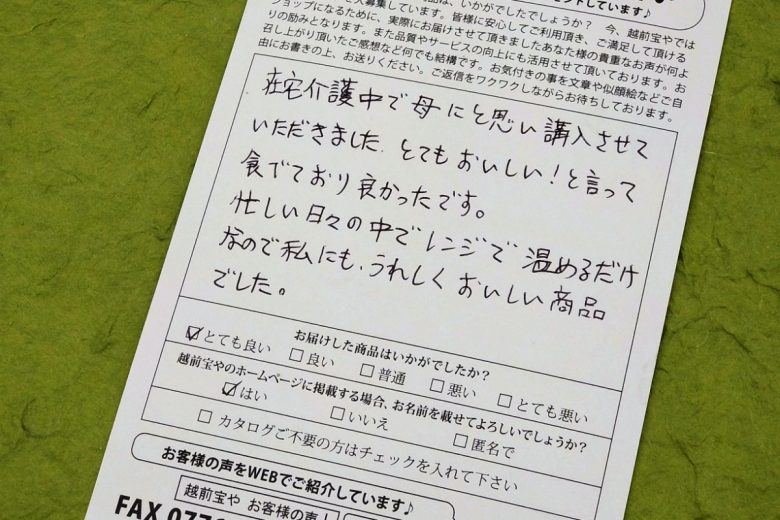 ントしています♪
品は、いかがでしたでしょうか？ 今、越前宝やでは
大募集しています。皆様に安心してご利用頂き、ご満足して頂ける
ショップになるために、実際にお届けさせて頂きましたあなた様の貴重なお声が何よ
りの励みとなります。また品質やサービスの向上にも活用させて頂いております。お
召し上がり頂いたご感想など何でも結構です。お気付きの事を文章や似顔絵などご自
由にお書きの上、お送りください。ご返信をワクワクしながらお待ちしております。
在宅介護中で母にと思い購入させて
いただきました. とてもおいしい！と言って
食べており良かったです。
忙しい日々の中でレンジで温めるだけ
なので私にも、うれしくおいしい商品
でした。
お届けした商品はいかがでしたか？
☑とても良い □良い □普通 □悪い □とても悪い
越前宝やのホームページに掲載する場合、お名前を載せてよろしいでしょうか？
☑はい □いいえ □匿名で
□ カタログご不要の方はチェックを入れて下さい
お客様の声をWEBでご紹介しています♪
越前宝や お客様の声！
FAX 077